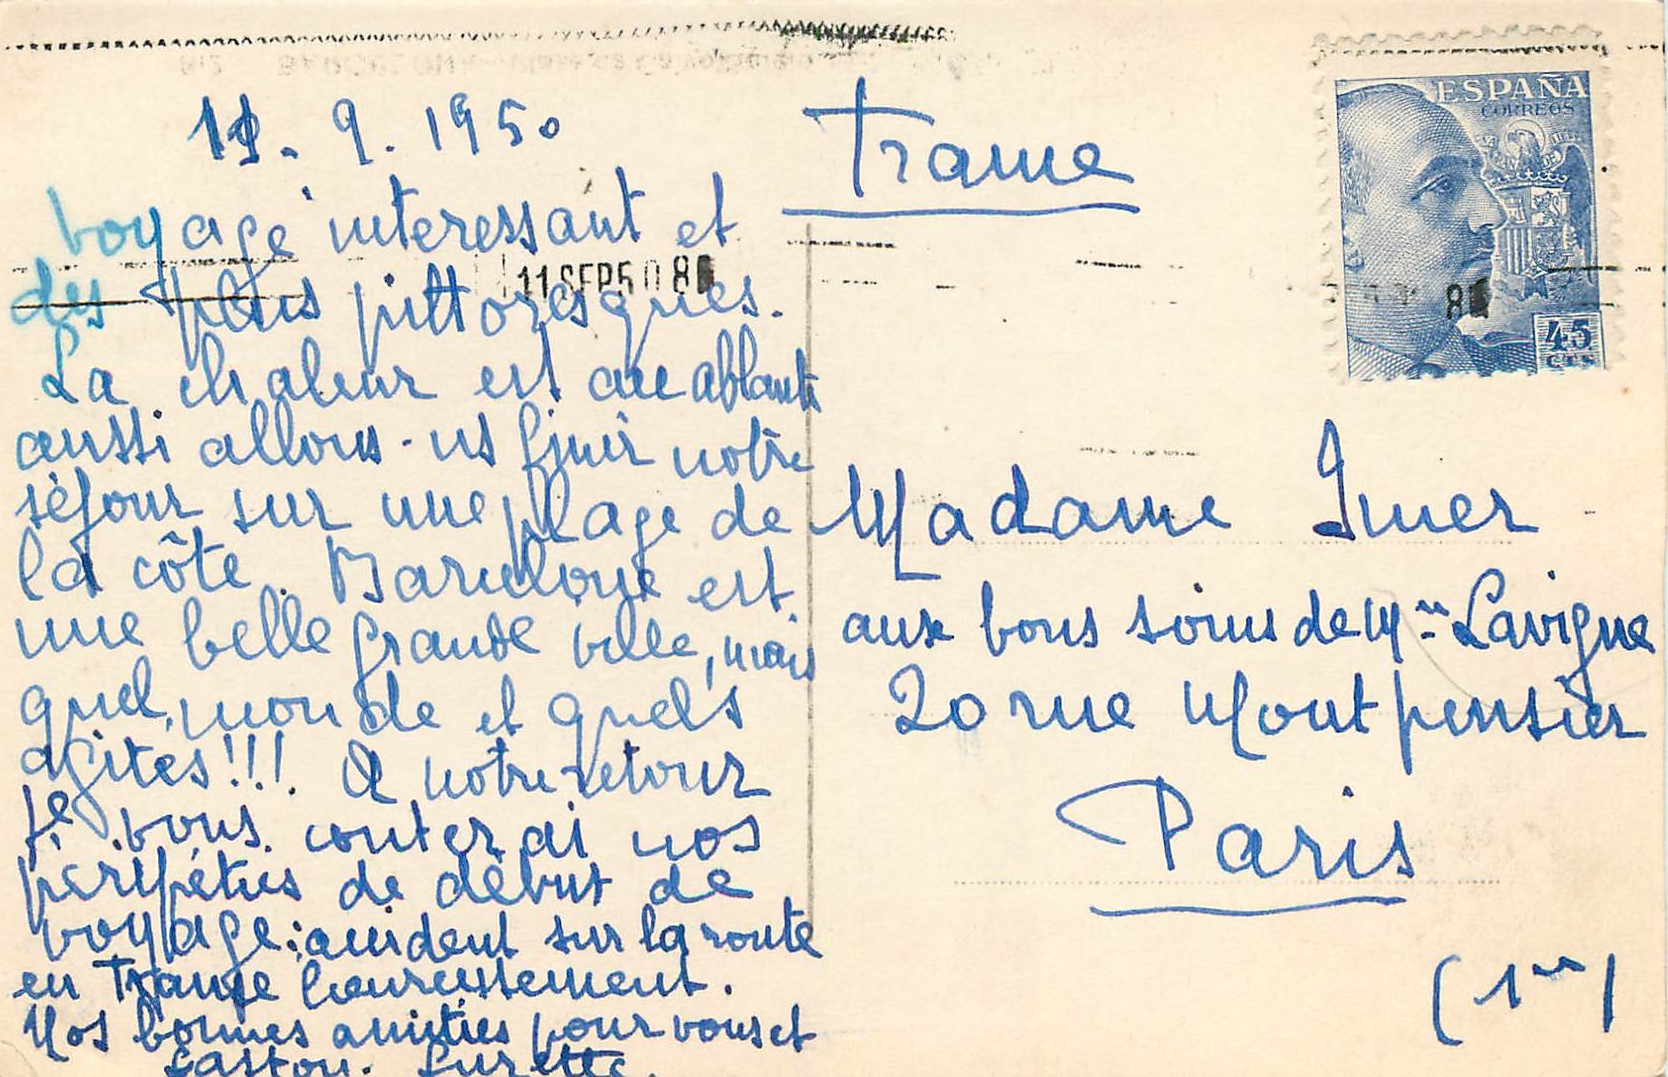 11. 9. 1950
Voyage interessant et
des plus pittoresques.
La chaleur est accablante
aussi allons-ns finir notre
séjour sur une plage de
la côte. Barcelone est
une belle grande ville, mais
quel monde et quels
agités!!! A notre retour
je vous conterai nos
péripéties de début de
voyage: accident sur la route
en France heureusement.
Nos bonnes amitiés pour vous et
Gaston. Lucette.
11 SEP 50 8
France
ESPAÑA
CORREOS
45
CTS
8
Madame Imer
aux bons soins de Mme Lavigne
20 rue Montpensier
Paris
(1er)